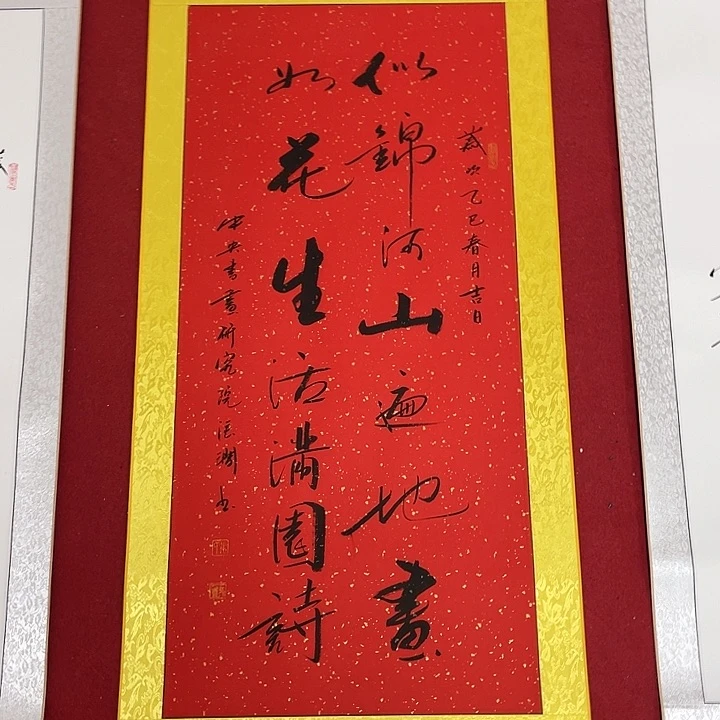 歲次乙巳春月吉日
似錦河山遍地畫
如花生活滿園詩
中央書畫研究院